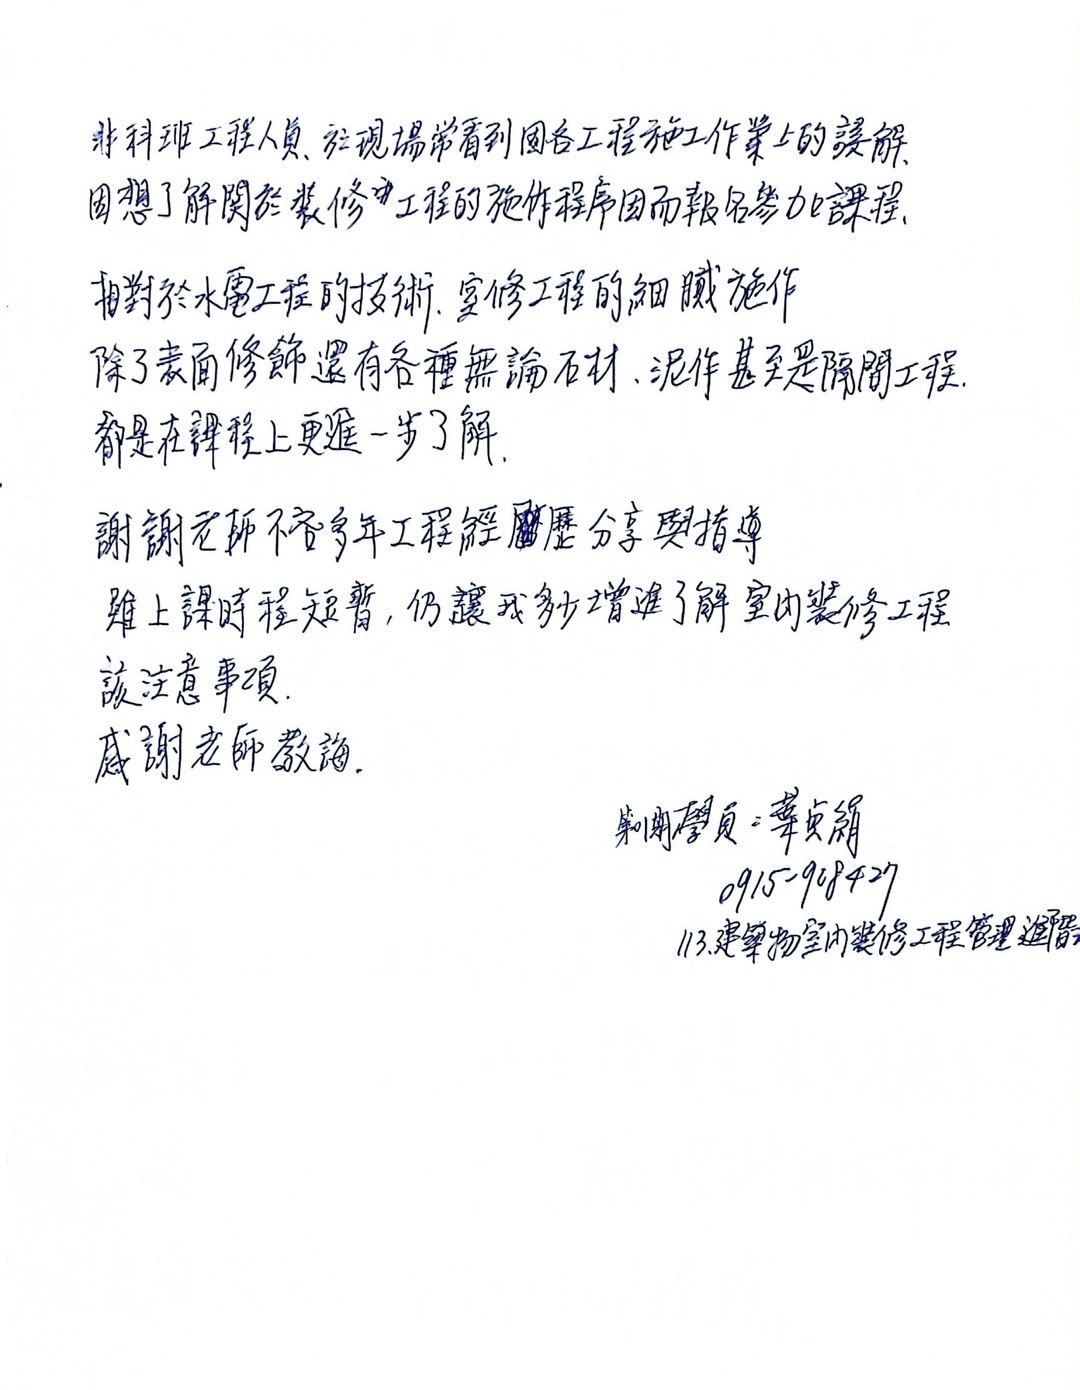 非科班工程人員、於現場常看到因各工程施工作業上的誤解、
因想了解關於裝修工程的施作程序因而報名參加課程、
相對於水電工程的技術、室修工程的細膩施作
除了表面修飾還有各種無論石材、泥作甚至是隔間工程.
都是在課程上更進一步了解.
謝謝老師不吝多年工程經歷分享與指導
雖上課時程短暫,仍讓我多少增進了解室內裝修工程
該注意事項.
感謝老師教誨.
學員:葉貞絹
0915-908427
113.建築物室內裝修工程管理進階